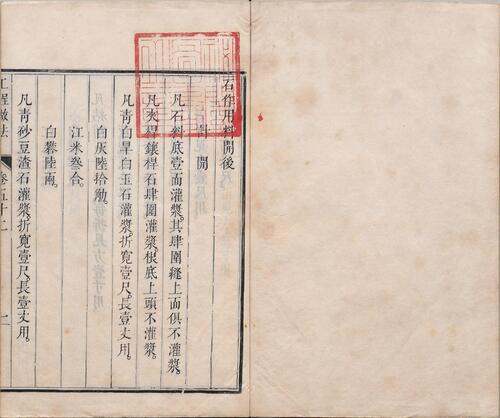 石作用料開後
計開
凡石料底壹面灌漿。其肆圍縫上面俱不灌漿。
凡夾桿鑲桿石肆圍灌漿。根底上頭不灌漿。
凡青白旱白玉石灌漿。折寬壹尺。長壹丈用。
白灰陸拾觔。
江米叁合。
白礬陸兩。
凡青砂豆渣石灌漿。折寬壹尺。長壹丈用。
工程做法
卷五十二
一